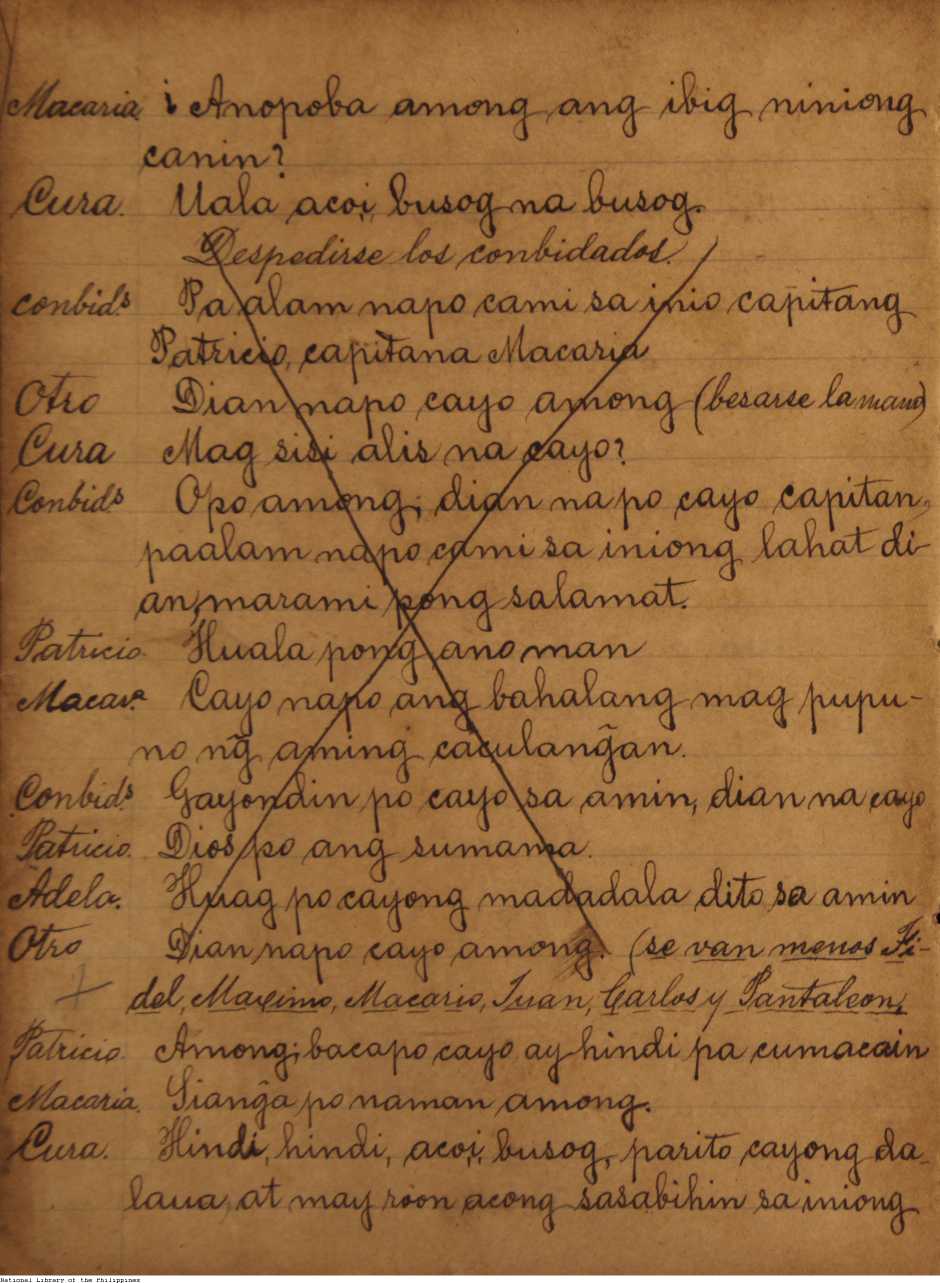 Macaria ¡Anopoba among ang ibig niniong
canin?
Cura. Uala acoi, busog na busog.
Despedirse los conbidados.
conbid.s Pa alam napo cami sa inio capitang
Patricio, capitana Macaria
Otro Dian napo cayo among (besarse la mano)
Cura Mag sisi alis na cayo?
Conbid.s Opo among, dian na po cayo capitan,
paalam napo cami sa iniong lahat di-
an, marami pong salamat.
Patricio Huala pong ano man
Macar.a Cayo napo ang bahalang mag pupu-
no ng̃ aming caculang̃an.
Conbid.s Gayondin po cayo sa amin, dian na cayo
Patricio. Dios po ang sumama.
Adela. Huag po cayong madadala dito sa amin
Otro Dian napo cayo among. (se van menos Fi-
del, Maximo, Macario, Juan, Carlos y Pantaleon,
Patricio. Among, bacapo cayo ay hindi pa cumacain
Macaria. Siang̃a po naman among.
Cura. Hindi, hindi, acoi, busog, parito cayong da-
laua, at may roon acong sasabihin sa iniong
National Library of the Philippines